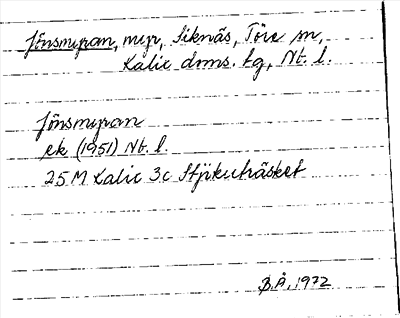 Jönsmyran, myr, Siknäs, Töre sn,
Kalix dms. tg, Nb. l.
Jönsmyran
ek (1951) Nb. l.
25 M Kalix 3c Stjikuträsket
B.Å., 1972